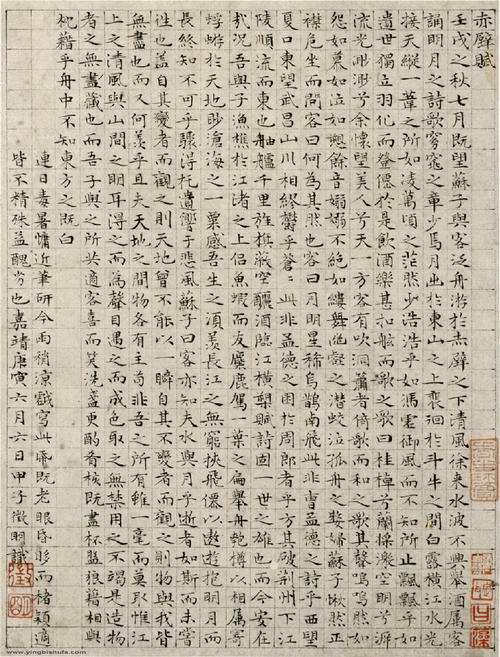 赤壁賦
壬戌之秋七月既望蘇子與客泛舟游於赤壁之下清風徐來水波不興舉酒屬客
誦明月之詩歌窈窕之章少焉月出於東山之上裵徊於斗牛之間白露橫江水光
接天縱一葦之所如凌萬頃之茫然浩浩乎如馮虛御風而不知所止飄飄乎如
遺世獨立羽化而登僊於是飲酒樂甚扣舷而歌之歌曰桂棹兮蘭槳擊空明兮泝
流光渺渺兮余懷望美人兮天一方客有吹洞簫者倚歌而和之其聲嗚嗚然如
怨如慕如泣如愬餘音嫋嫋不絕如縷舞幽壑之潛蛟泣孤舟之嫠婦蘇子愀然正
襟危坐而問客曰何為其然也客曰月明星稀烏鵲南飛此非曹孟德之詩乎西望
夏口東望武昌山川相繆鬱乎蒼蒼此非孟德之困於周郎者乎方其破荊州下江
陵順流而東也舳艫千里旌旗蔽空釃酒臨江橫槊賦詩固一世之雄也而今安在
哉況吾與子漁樵於江渚之上侶魚蝦而友麋鹿駕一葉之扁舉舟匏樽以相屬寄
蜉蝣於天地眇滄海之一粟感吾生之須臾羨長江之無窮挾飛僊以遨遊抱明月而
長終知不可乎驟得托遺響於悲風蘇子曰客亦知夫水與月乎逝者如斯而未嘗
往也蓋自其變者而觀之則天地曾不能以一瞬自其不變者而觀之則物與我皆
無盡也而又何羨乎且夫天地之間物各有主苟非吾之所有雖一毫而莫取惟江
上之清風與山間之明耳得之而為聲目遇之而成色取之無禁用之不竭是造物
者之無盡藏也而吾子與之所共適客喜而笑洗盞更酌肴核既盡杯盤狼籍相與
枕藉乎舟中不知東方之既白
連日毒暑慵近筆研今雨稍涼戲寫此齋既老眼昏眵而楮穎適
皆不精殊益醜劣也嘉靖庚寅六月六日甲子徵明識
徵明
www.yingbishufa.com